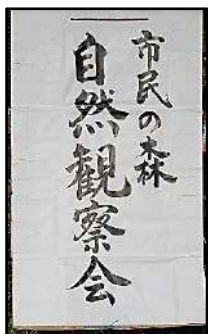 市民の森
自然観察会